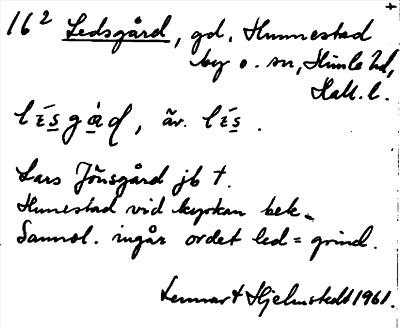 16² Ledsgård, gd, Hunnestad
by o. sn, Himle hd,
Hall. l.
lésgàd, äv. lés.
Lars Jönsgård jb †.
Hunestad vid kyrkan bek.
Sannol. ingår ordet led = grind.
Lennart Hjelmstedt 1961.